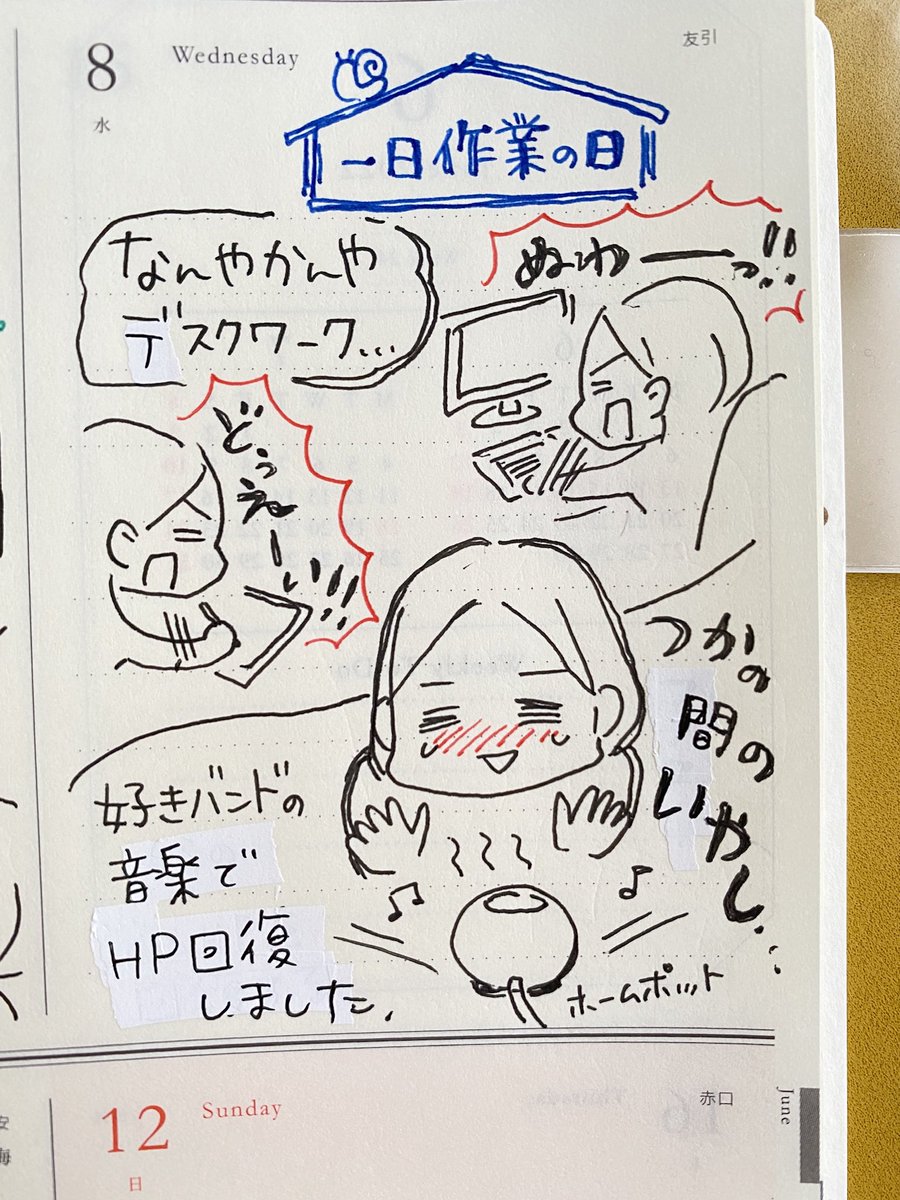 8
Wednesday
友引
水
一日作業の日
なんやかんや
デスクワーク...
ぬわーーっ!!
どぅえーい!!
つかの
間の
いやし...
好きバンドの
音楽で
HP回復
しました.
ホームポット
12
Sunday
赤口
日
June